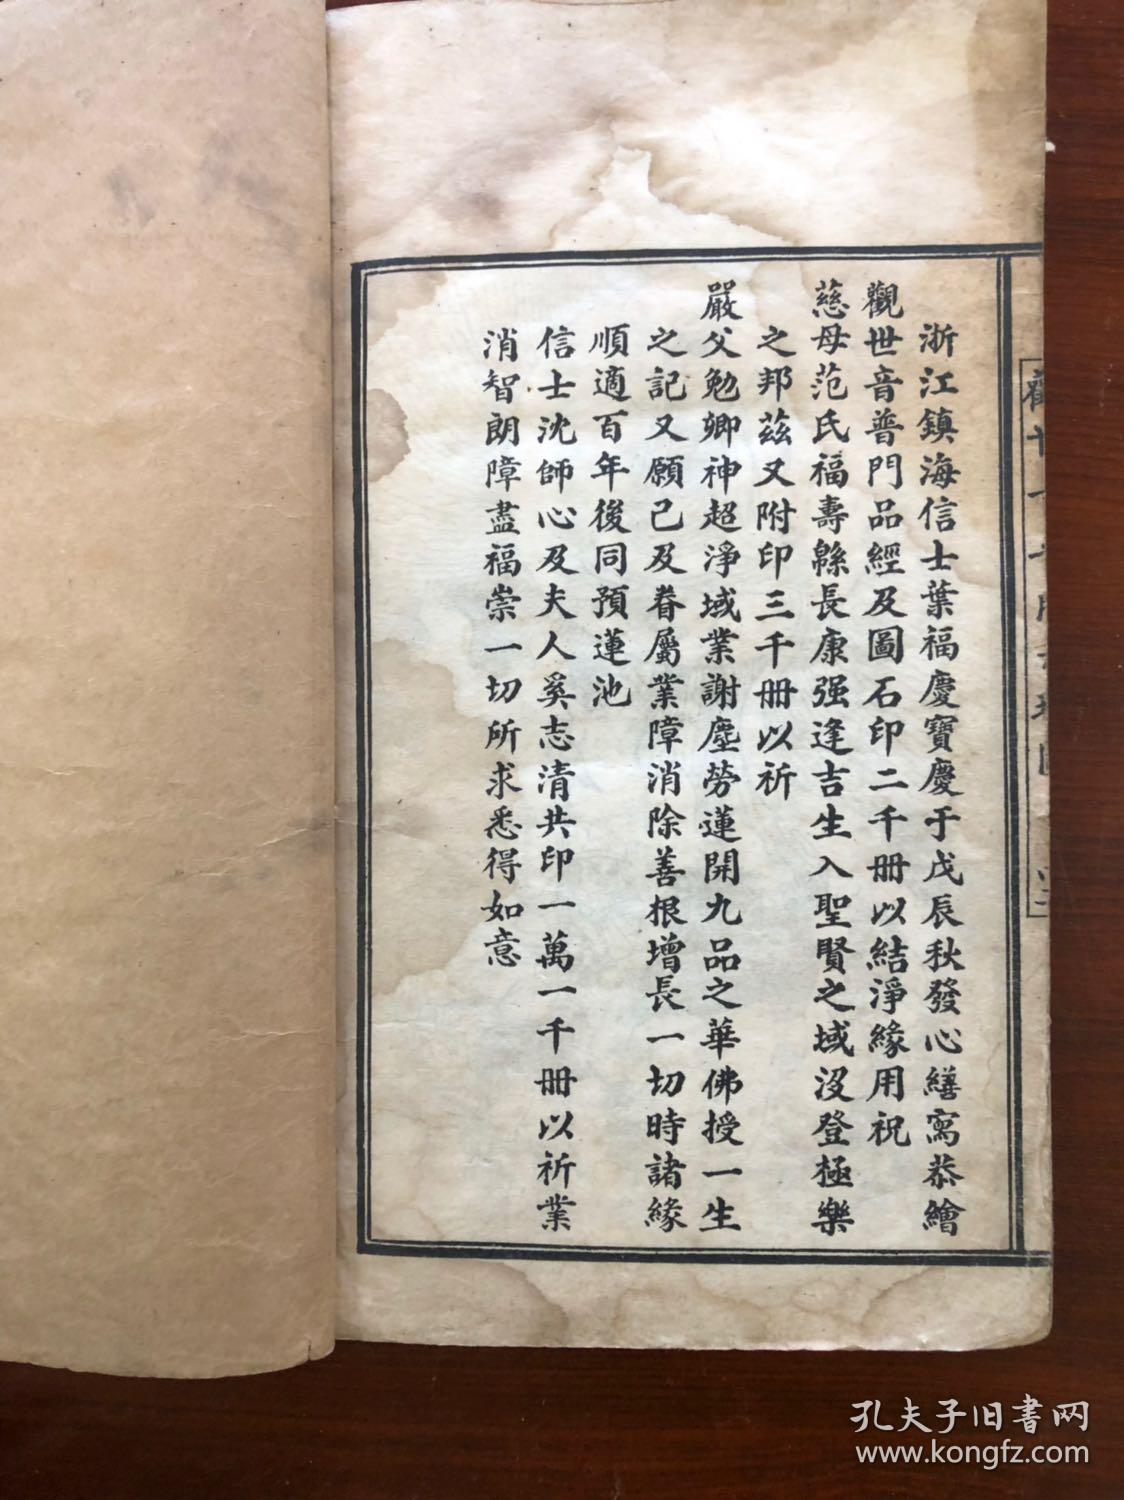 浙江鎮海信士葉福慶寶慶于戊辰秋發心繕寫恭繪
觀世音普門品經及圖石印二千冊以結淨緣用祝
慈母范氏福壽緜長康强逢吉生入聖賢之域沒登極樂
之邦茲又附印三千冊以祈
嚴父勉卿神超淨域業謝塵勞蓮開九品之華佛授一生
之記又願己及眷屬業障消除善根增長一切時諸緣
順適百年後同預蓮池
信士沈師心及夫人奚志清共印一萬一千冊以祈業
消智朗障盡福崇一切所求悉得如意
孔夫子旧書网
www.kongfz.com